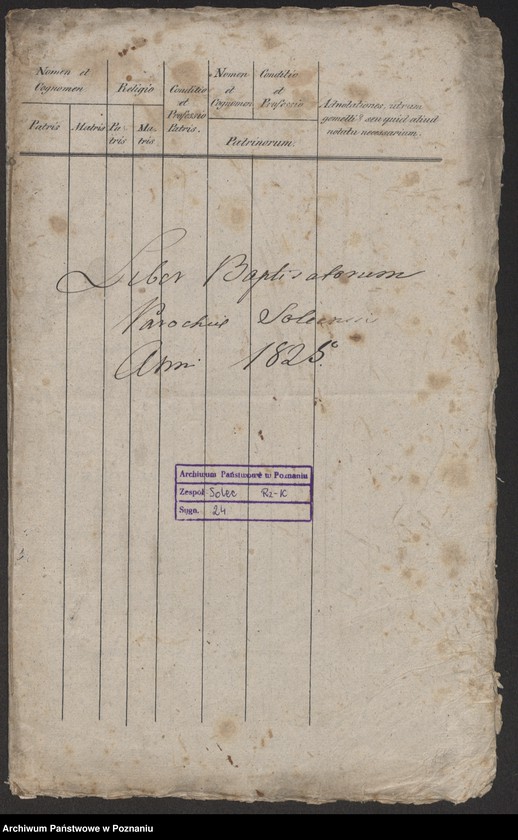 Nomen et Cognomen
Religio
Conditio et Professio Patris.
Nomen et Cognomen
Conditio et Professio
Adnotationes, utrum gemelli? seu quid aliud notatu necessarium.
Patris
Matris
Pa-tris
Ma-tris
Patrinorum.
Liber Baptisatorum
Parochiæ
Anni 1825.
Archiwum Państwowe w Poznaniu
Zespół Solec Rz-K
Sygn. 24
Archiwum Państwowe w Poznaniu